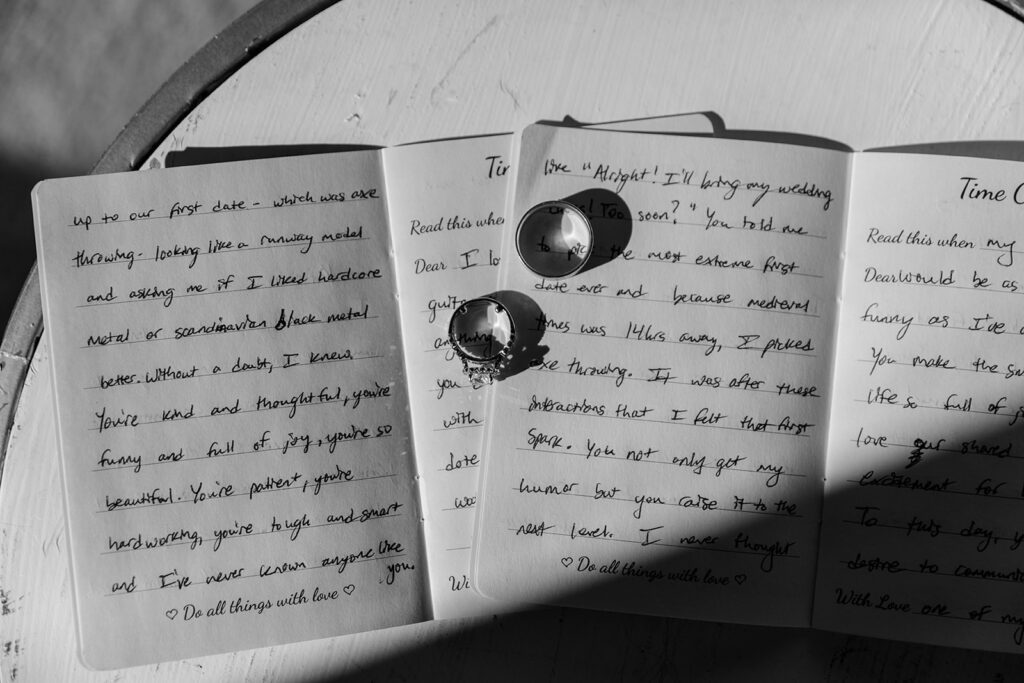 up to our first date - which was axe
throwing - looking like a runway model
and asking me if I liked hardcore
metal or scandinavian black metal
better. Without a doubt, I knew.
You're kind and thoughtful, you're
funny and full of joy, you're so
beautiful. You're patient, you're
hardworking, you're tough and smart
and I've never known anyone like
you.
♡ Do all things with love ♡
Read this when
Dear I
you
with
like "Alright! I'll bring my wedding
Too soon?" You told me
to pick the most extreme first
date ever and because medieval
times was 14hrs away, I picked
axe throwing. It was after these
interactions that I felt that first
spark. You not only get my
humor but you raise it to the
next level. I never thought
♡ Do all things with love ♡
Time
Read this when my
Dear would be as
funny as I've
You make the
life so full of
love our shared
excitement for
To this day,
desire to
With Love one of my